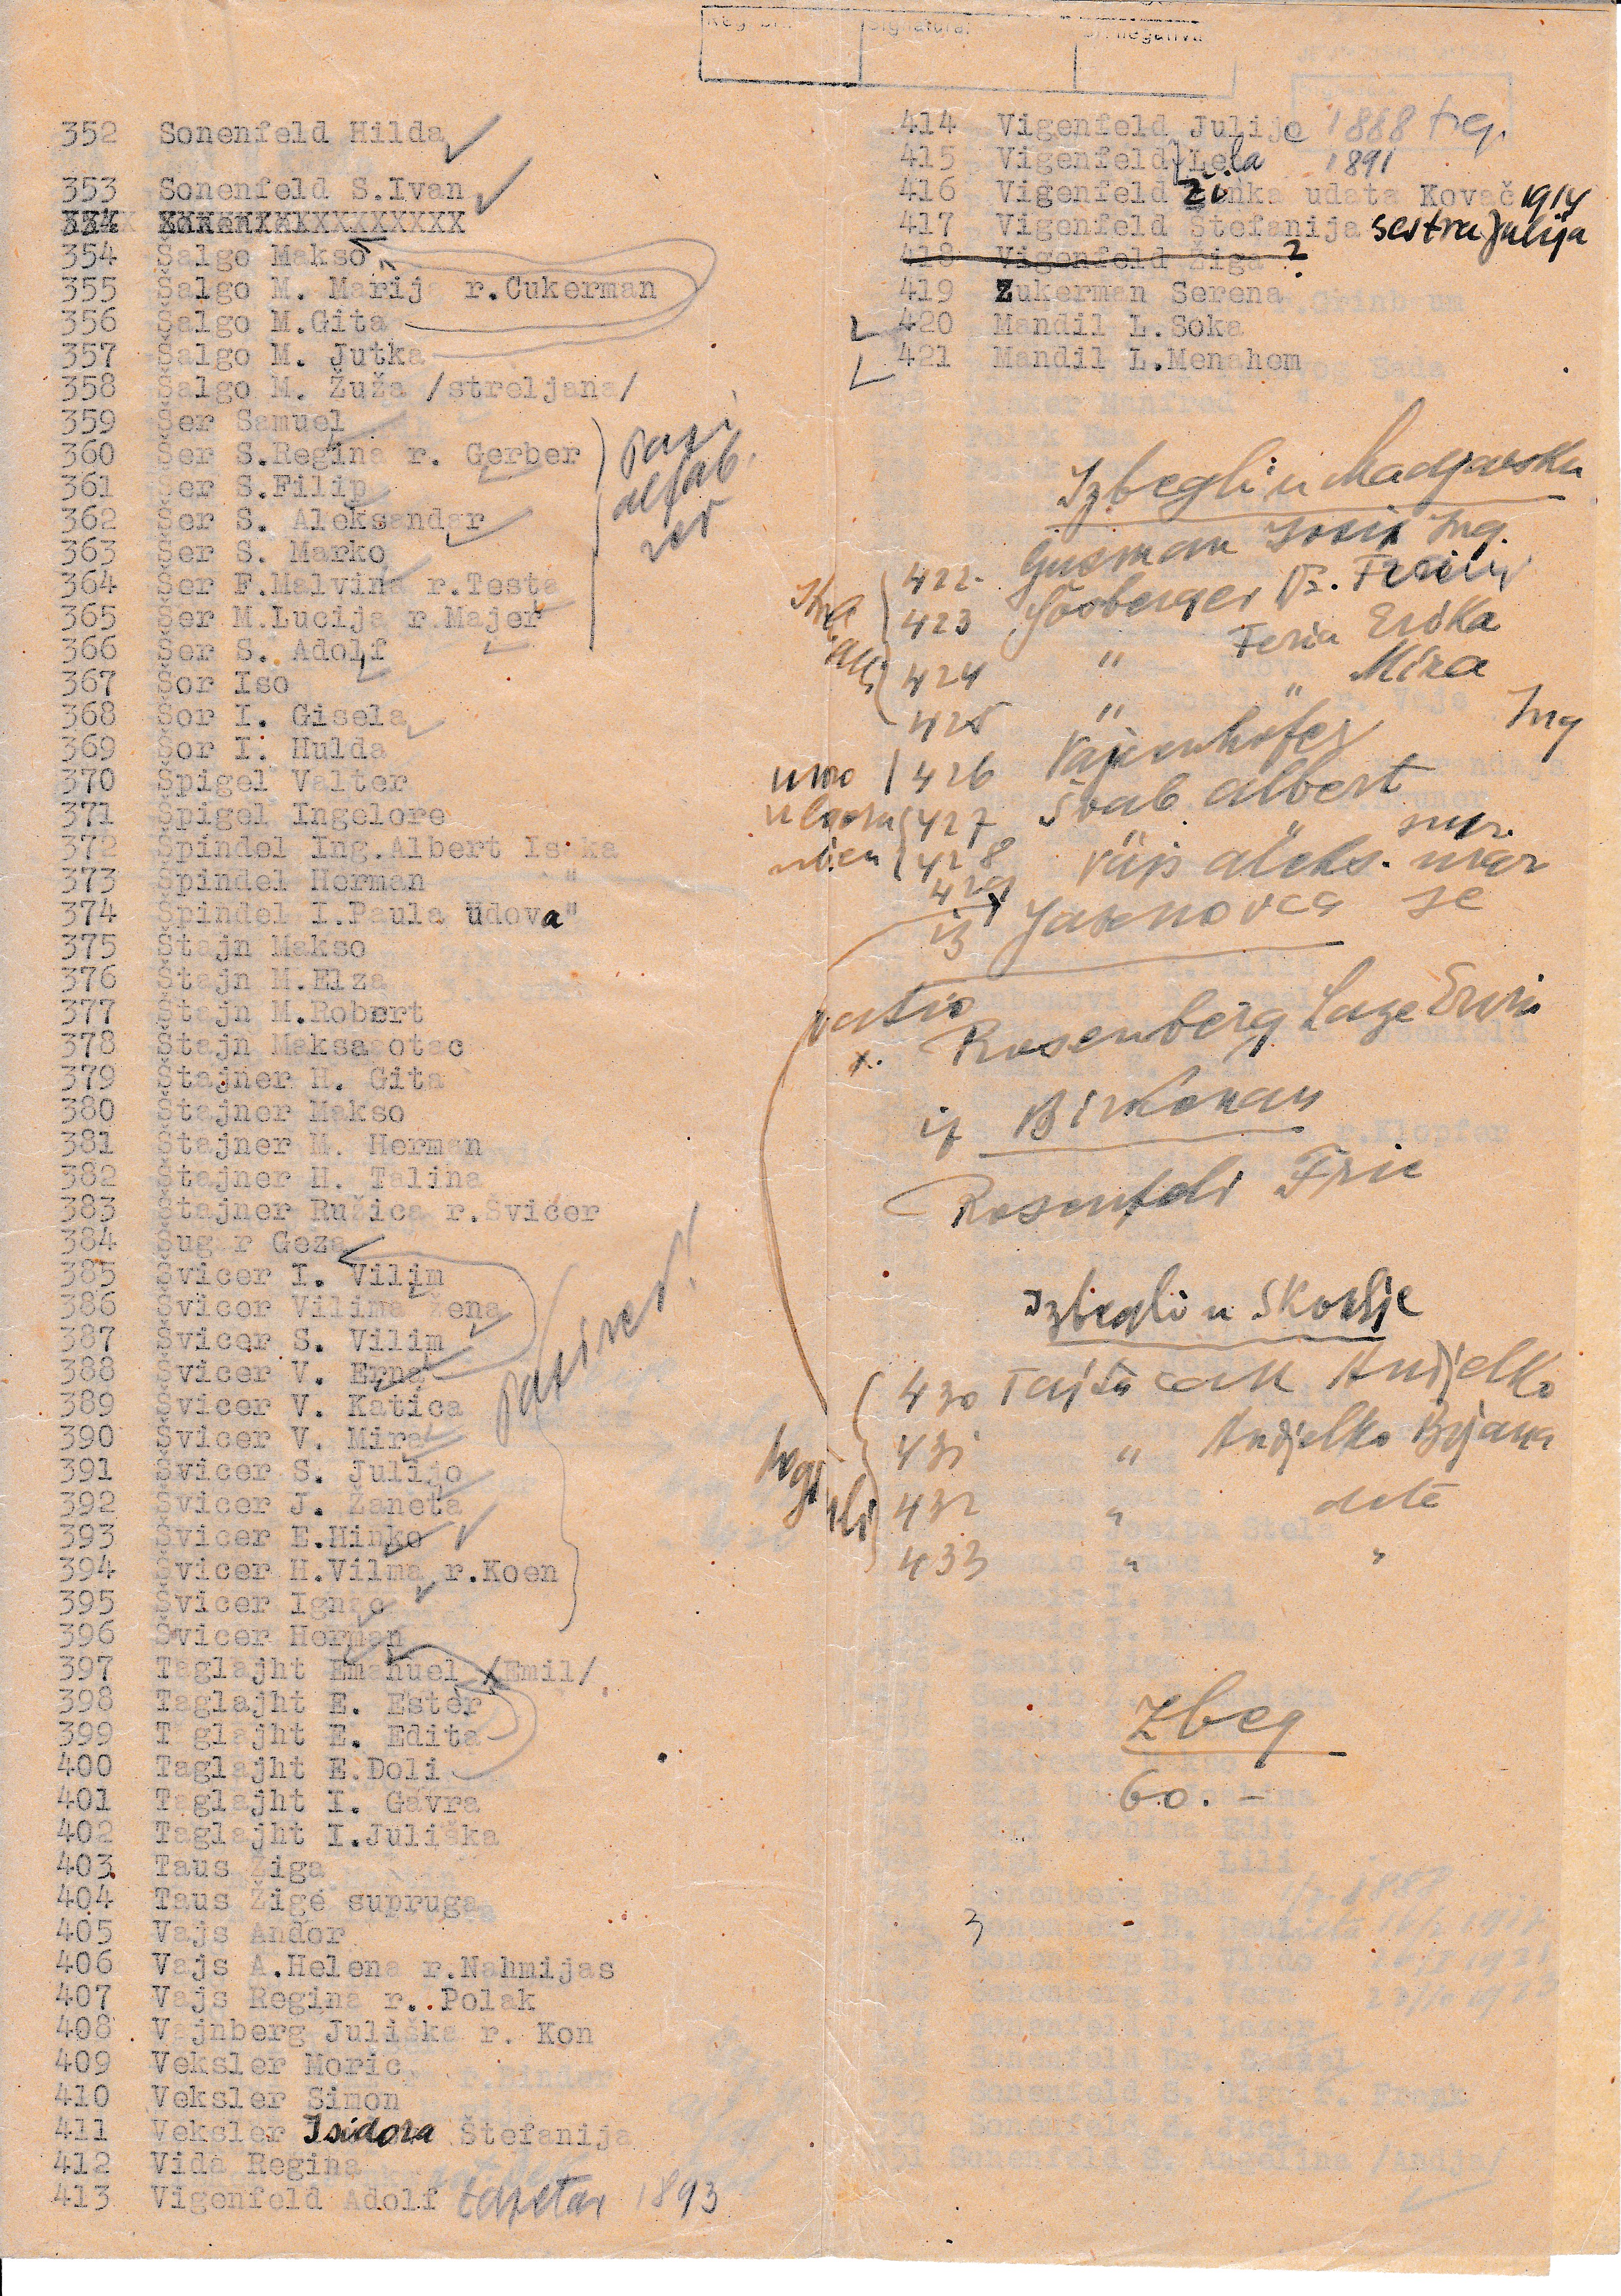 Signatura:
352 Sonenfeld Hilda
353 Sonenfeld S.Ivan
354 Šalgo Makso
355 Šalgo M. Marija r.Cukerman
356 Šalgo M.Gita
357 Šalgo M. Jutka
358 Šalgo M. Žuža /streljana/
359 Šer Samuel
360 Šer S.Regina r. Gerber
361 Šer S.Filip
362 Šer S. Aleksandar
363 Šer S. Marko
364 Šer F.Malvina r.Testa
365 Šer M.Lucija r.Majer
366 Šer S. Adolf
pazi
alfab.
red
367 Šor Iso
368 Šor I. Gisela
369 Šor I. Hulda
370 Špigel Valter
371 Špigel Ingelore
372 Špindel Ing.Albert Isaka
373 Špindel Herman "
374 Špindel I.Paula udova"
375 Štajn Makso
376 Štajn M.Elza
377 Štajn M.Robert
378 Štajn Maksa otac
379 Štajner H. Gita
380 Štajner Makso
381 Štajner M. Herman
382 Štajner H. Talina
383 Štajner Ružica r.Švicer
384 Šugar Geza
385 Švicer I. Vilim
386 Švicer Vilima žena
387 Švicer S. Vilim
388 Švicer V. Erna
389 Švicer V. Katica
390 Švicer V. Mira
391 Švicer S. Julijo
392 Švicer J. Žaneta
393 Švicer E.Hinko
394 Švicer H.Vilma r.Koen
395 Švicer Ignac
396 Švicer Herman
397 Taglajht Emanuel /Emil/
398 Taglajht E. Ester
399 Taglajht E. Edita
400 Taglajht E.Doli
401 Taglajht I. Gavra
402 Taglajht I.Juliška
403 Taus Žiga
404 Taus Žige supruga
405 Vajs Andor
406 Vajs A.Helena r.Nahmijas
407 Vajs Regina r. Polak
408 Vajnberg Juliška r. Kon
409 Veksler Moric
410 Veksler Simon
411 Veksler Isidora Štefanija
412 Vida Regina
413 Vigenfeld Adolf tapetar 1893
414 Vigenfeld Julije 1888 trg.
415 Vigenfeld Lela 1891
416 Vigenfeld Zinka udata Kovač 1914
417 Vigenfeld Štefanija sestra Julija
418 Vigenfeld Žiga ?
419 Zukerman Serena
420 Mandil L.Soka
421 Mandil L.Menahem
Izbegli u Madjarsku
422 Josip Ing.
423 Dr.
424 " Erika
425 " " Mira
426 Ing
427 Švab Albert
428 "
429
iz Jasenovca se
vratio
x. Rosenberg Laze Ervin
iz Birkenau
Rosenfeld Fric
Izbegli u Skoplje
430 Andjelko
431 " Andjelko
432 " dete
433 " "
Zbeg
60. –
3